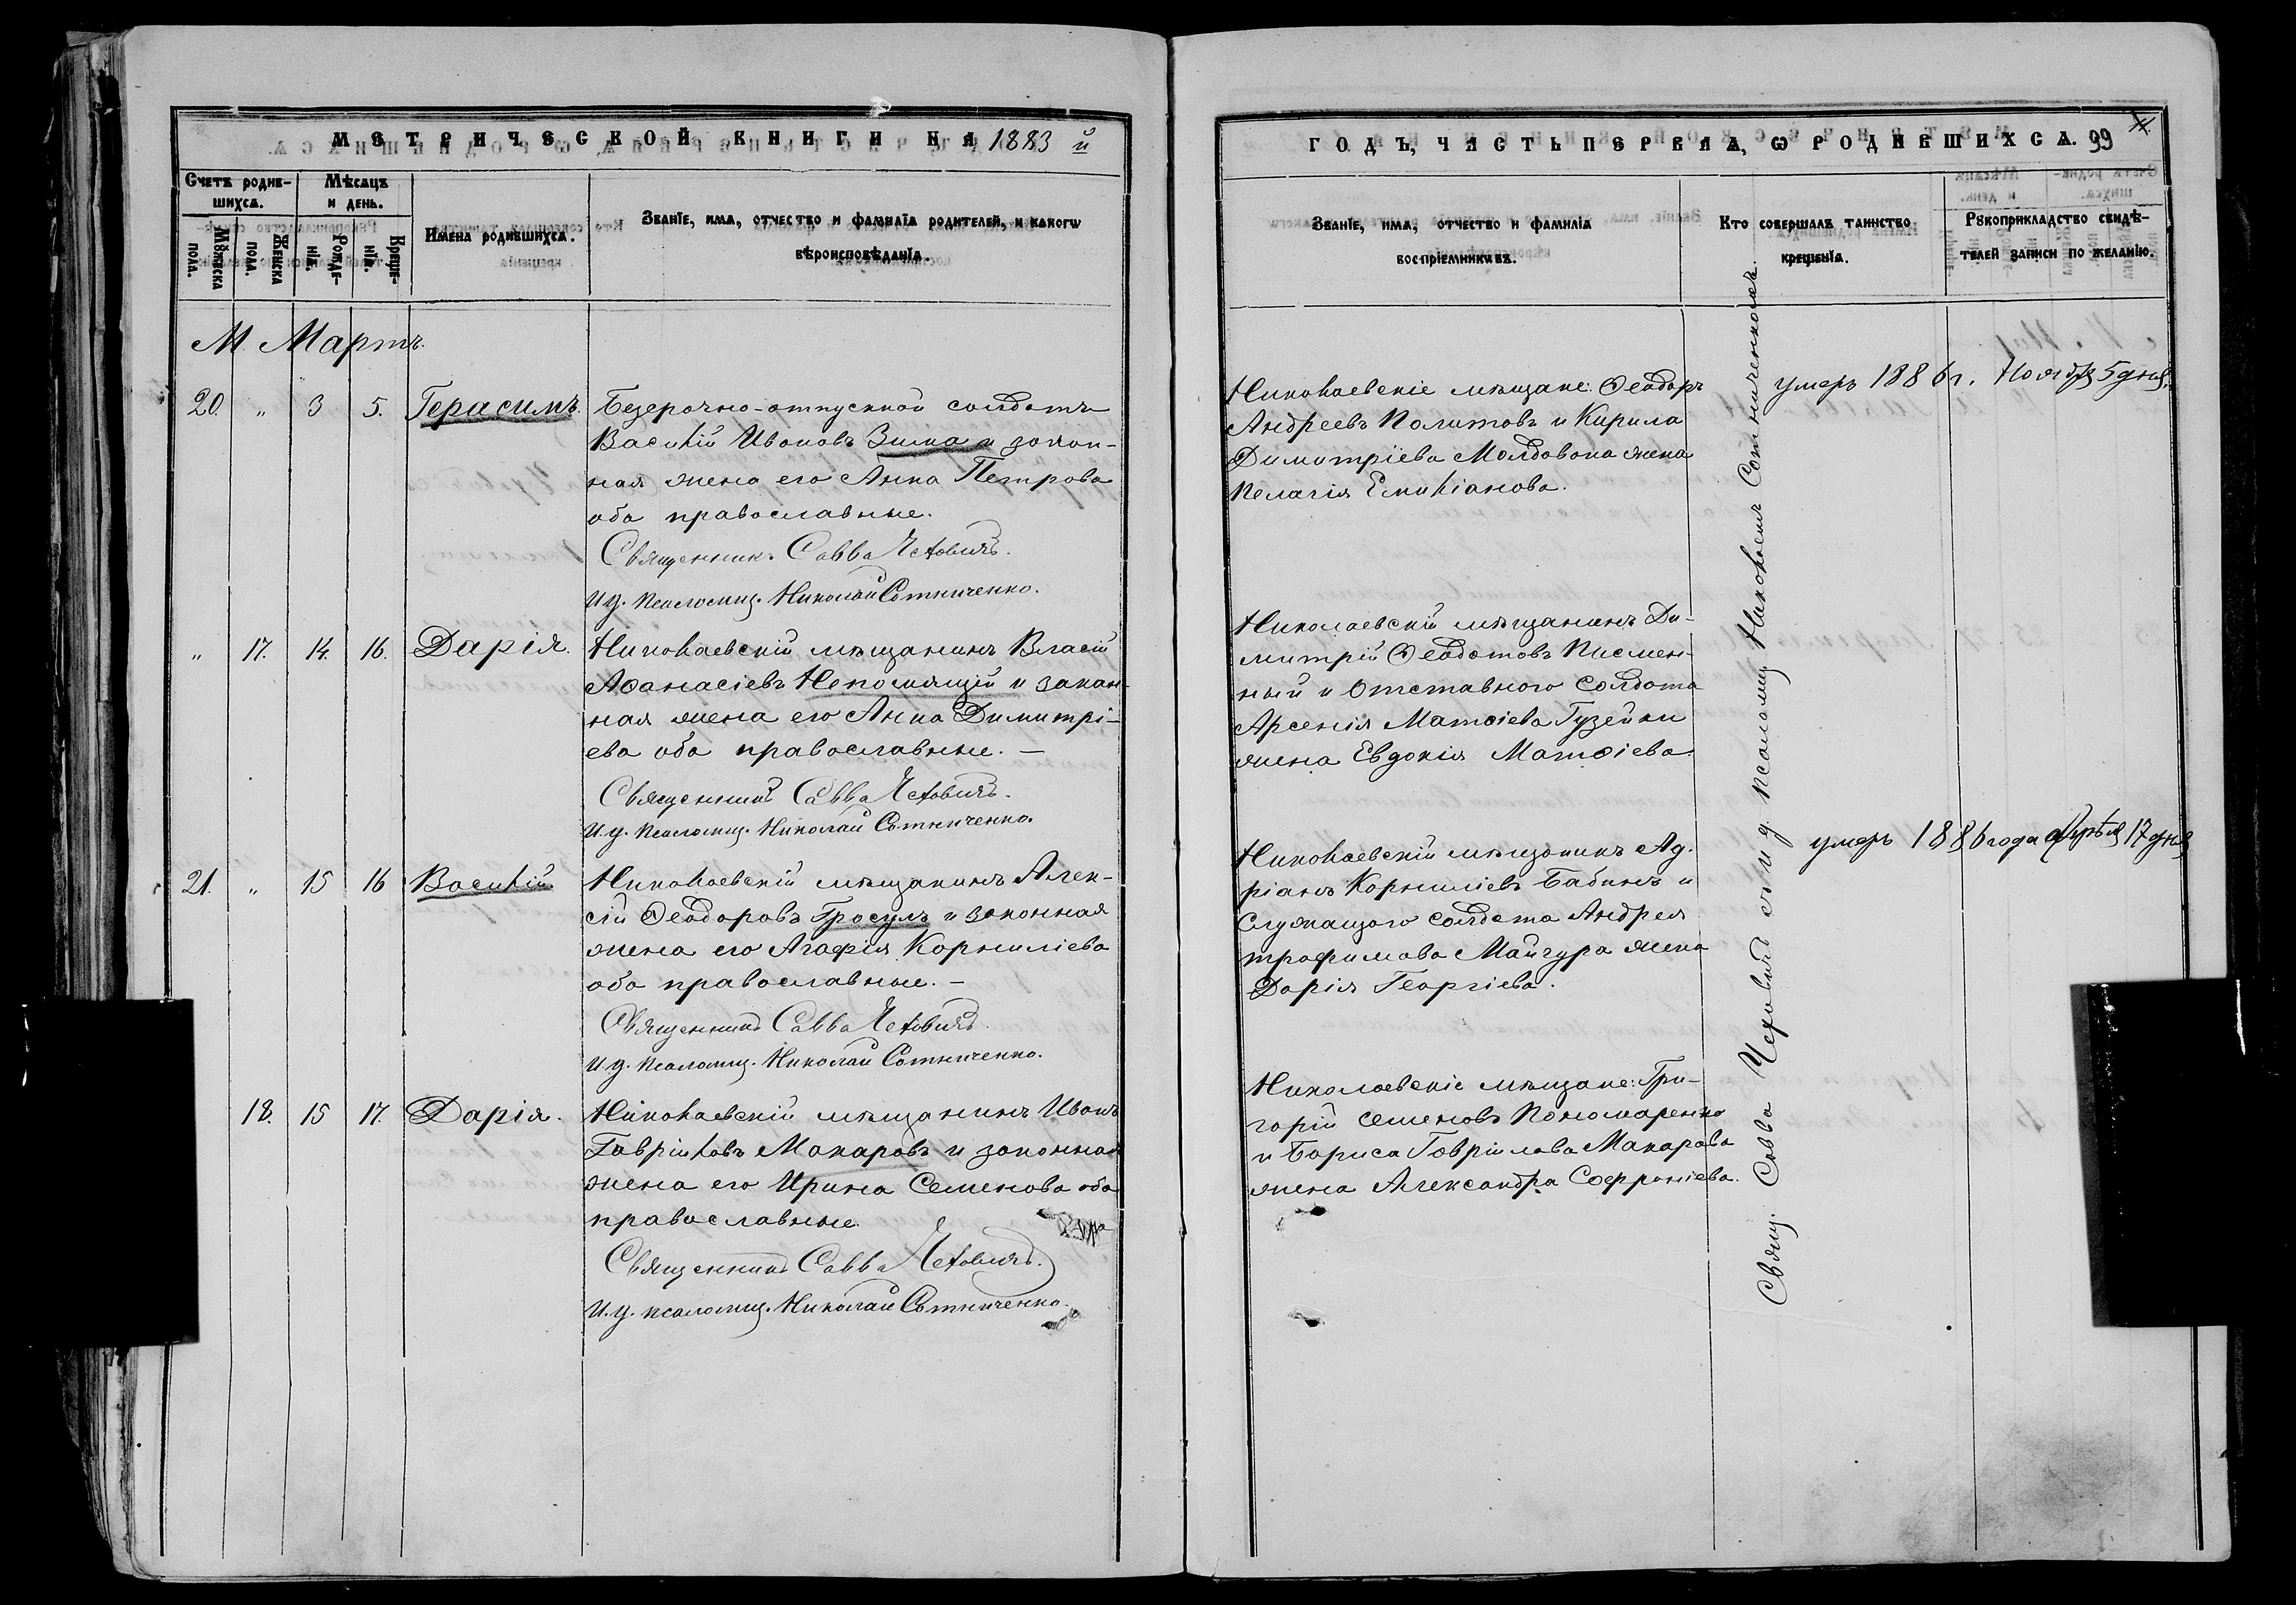 МЕТРИЧЕСКОЙ КНИГИ НА 1883 й
Счетъ родив-
шихся.
Мѣсяцъ
и день.
Мужеска
пола.
Женска
пола.
Рожде-
нія.
Креще-
нія.
Имена родившихся.
Званіе, имя, отчество и фамилія родителей, и какогѡ
вѣроисповѣданія.
М. Мартъ.
20. " 3 5. Герасимъ.
Безсрочно-отпускной солдатъ
Василій Ивановъ Зима и закон-
ная жена его Анна Петрова
оба православные.
Священникъ Савва Чеховичъ.
И. д. псаломщ. Николай Сотниченко.
" 17. 14. 16. Дарія.
Николаевскій мѣщанинъ Власій
Аѳанасіевъ Непомящій и закон-
ная жена его Анна Димитрі-
ева оба православные. —
Священникъ Савва Чеховичъ.
И. д. псаломщ. Николай Сотниченко.
21. " 15 16 Василій
Николаевскій мѣщанинъ Алек-
сій Ѳеодоровъ Гросулъ и законная
жена его Агафія Корниліева
оба православные. —
Священникъ Савва Чеховичъ.
И. д. псаломщ. Николай Сотниченко.
18. 15 17. Дарія.
Николаевскій мѣщанинъ Иванъ
Гавріиловъ Макаровъ и законная
жена его Ирина Семенова оба
православные.
Священникъ Савва Чеховичъ.
И. д. псаломщ. Николай Сотниченко.
ГОДЪ, ЧАСТЬ ПЕРВАЯ, Ѡ РОДИВШИХСЯ. 99
Званіе, имя, отчество и фамилія
воспріемниковъ.
Кто совершалъ таинство
крещенія.
Рукоприкладство свидѣ-
телей записи по желанію.
Николаевскіе мѣщане: Ѳеодоръ
Андреевъ Политовъ и Кирила
Димитріева Молдована жена
Пелагія Емиліанова.
умеръ 1886 г. Ноября 5 дня.
Николаевскій мѣщанинъ Ди-
митрій Ѳеодотовъ Писмен-
ный и отставного солдата
Арсенія Матѳіева Гузейки
жена Евдокія Матѳіева.
Николаевскій мѣщанинъ Ад-
ріанъ Корниліевъ Бабинъ и
служащаго солдата Андрея
трофимова Манчура жена
Дарія Георгіева.
умеръ 1886 года Апрѣля 17 дня
Николаевскіе мѣщане: Гри-
горій Семеновъ Пономаренко
и Бориса Гавріилова Макарова
жена Александра Софроніева.
Свящ. Савва Чеховичъ съ и. д. псаломщ. Николаемъ Сотниченкомъ.